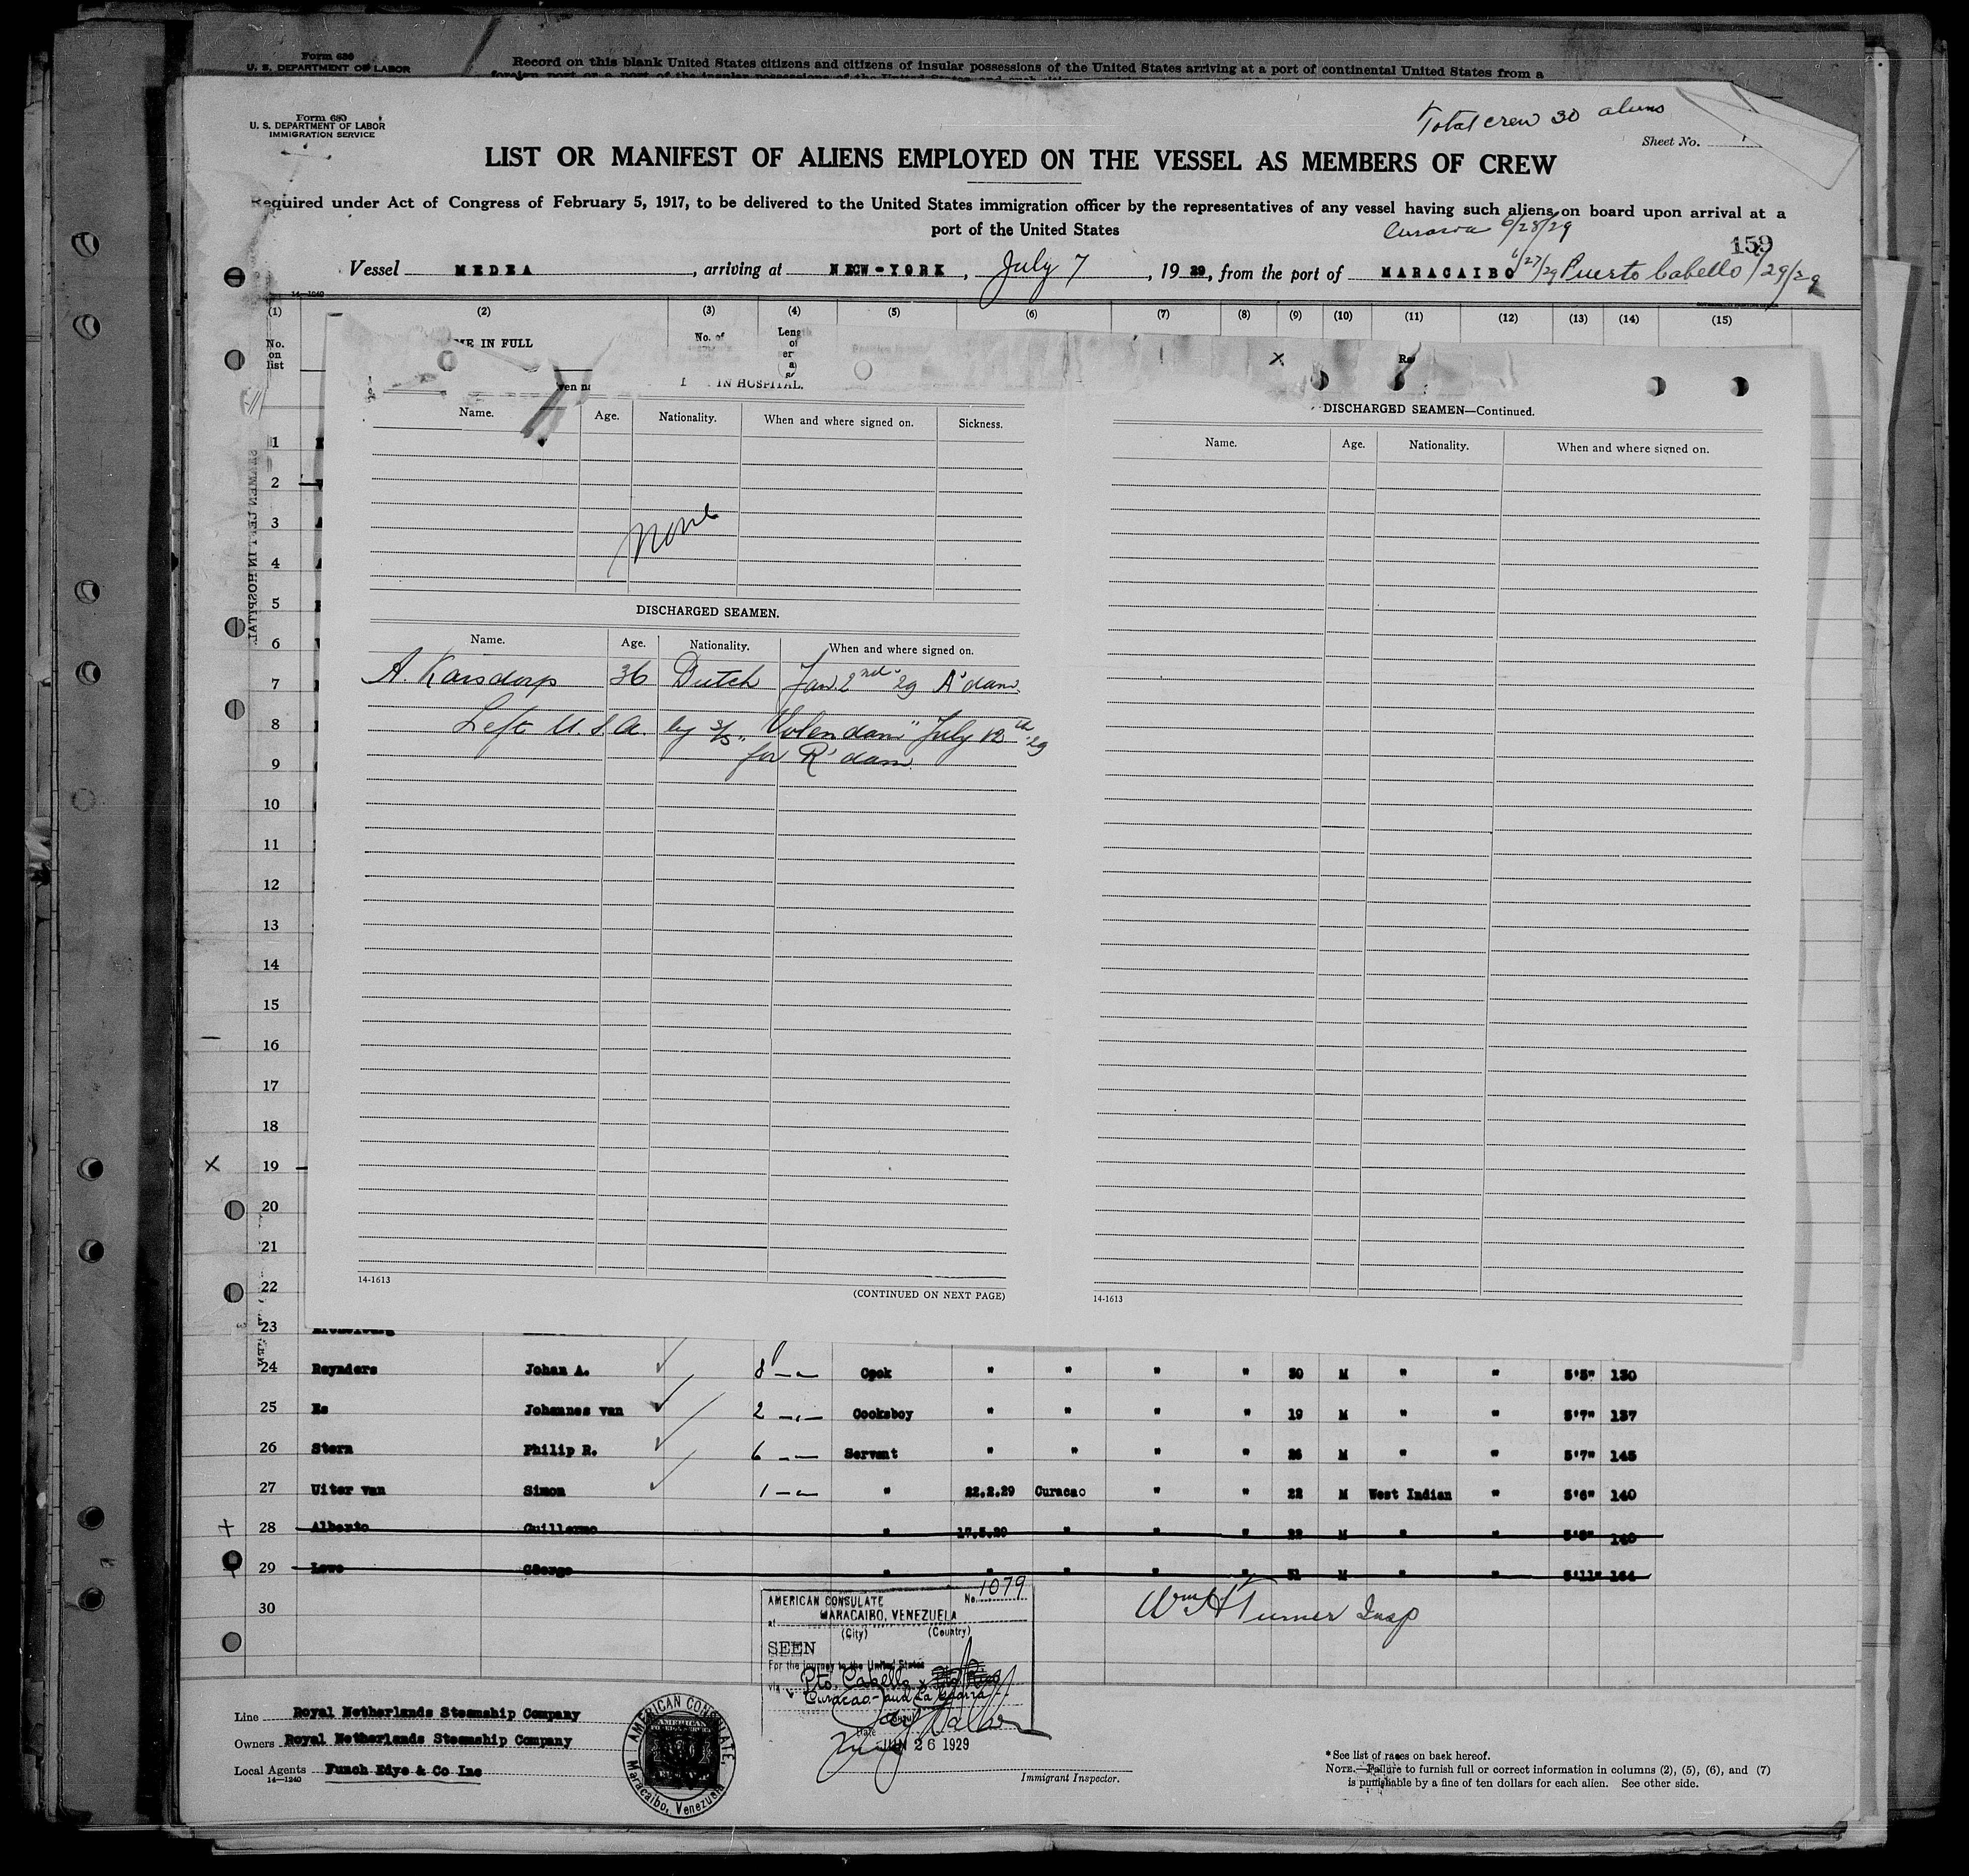 Form 630
U. S. DEPARTMENT OF LABOR
Record on this blank United States citizens and citizens of insular possessions of the United States arriving at a port of continental United States from a
Form 680
U. S. DEPARTMENT OF LABOR
IMMIGRATION SERVICE
Total crew 30 aliens
Sheet No.
LIST OR MANIFEST OF ALIENS EMPLOYED ON THE VESSEL AS MEMBERS OF CREW
Required under Act of Congress of February 5, 1917, to be delivered to the United States immigration officer by the representatives of any vessel having such aliens on board upon arrival at a
port of the United States
6/28/29
159
Vessel MEDEA, arriving at NEW-YORK, July 7, 1929, from the port of MARACAIBO 6/27/29 Puerto Cabello /29/29
14-1240
(1) (2) (3) (4) (5) (6) (7) (8) (9) (10) (11) (12) (13) (14) (15)
No. on list
ME IN FULL
No. of
IN HOSPITAL.
Name. Age. Nationality. When and where signed on. Sickness.
None
DISCHARGED SEAMEN.
Name. Age. Nationality. When and where signed on.
A. Karsdorp 36 Dutch Jan. 2nd 29 A'dam.
Left U.S.A. by s/s "Volendam" July 12th '29
for R'dam
14-1613
(CONTINUED ON NEXT PAGE)
DISCHARGED SEAMEN—Continued.
Name. Age. Nationality. When and where signed on.
14-1613
SEAMEN LEFT IN HOSPITAL.
1
2
3
4
5
6
7
8
9
10
11
12
13
14
15
16
17
18
19
20
21
22
23
24 Reynders Johan A. 8 —"— Cook " " " " 30 M " " 5'5" 130
25 Es Johannes van 2 —"— Cooksboy " " " " 19 M " " 5'7" 137
26 Stern Philip R. 6 —"— Servant " " " " 26 M " " 5'7" 145
27 Uiter van Simon 1 —"— " 22.2.29 Curacao " " 22 M West Indian " 5'6" 140
28 Alberto Guillermo " 17.5.29 " " " 22 M " " 140
29 Lowe George " " " " " 31 M " " 5'11" 164
30
AMERICAN CONSULATE No. 1079
at MARACAIBO, VENEZUELA
(City) (Country)
SEEN
For the journey to the United States
via Pto. Cabello
Curacao - and La Guaira
Consul
Date JUN 26 1929
Wm H Turner Insp
Line Royal Netherlands Steamship Company
Owners Royal Netherlands Steamship Company
Local Agents Funch Edye & Co Inc
14—1240
AMERICAN CONSULATE, Maracaibo, Venezuela
Immigrant Inspector.
*See list of races on back hereof.
NOTE.—Failure to furnish full or correct information in columns (2), (5), (6), and (7)
is punishable by a fine of ten dollars for each alien. See other side.